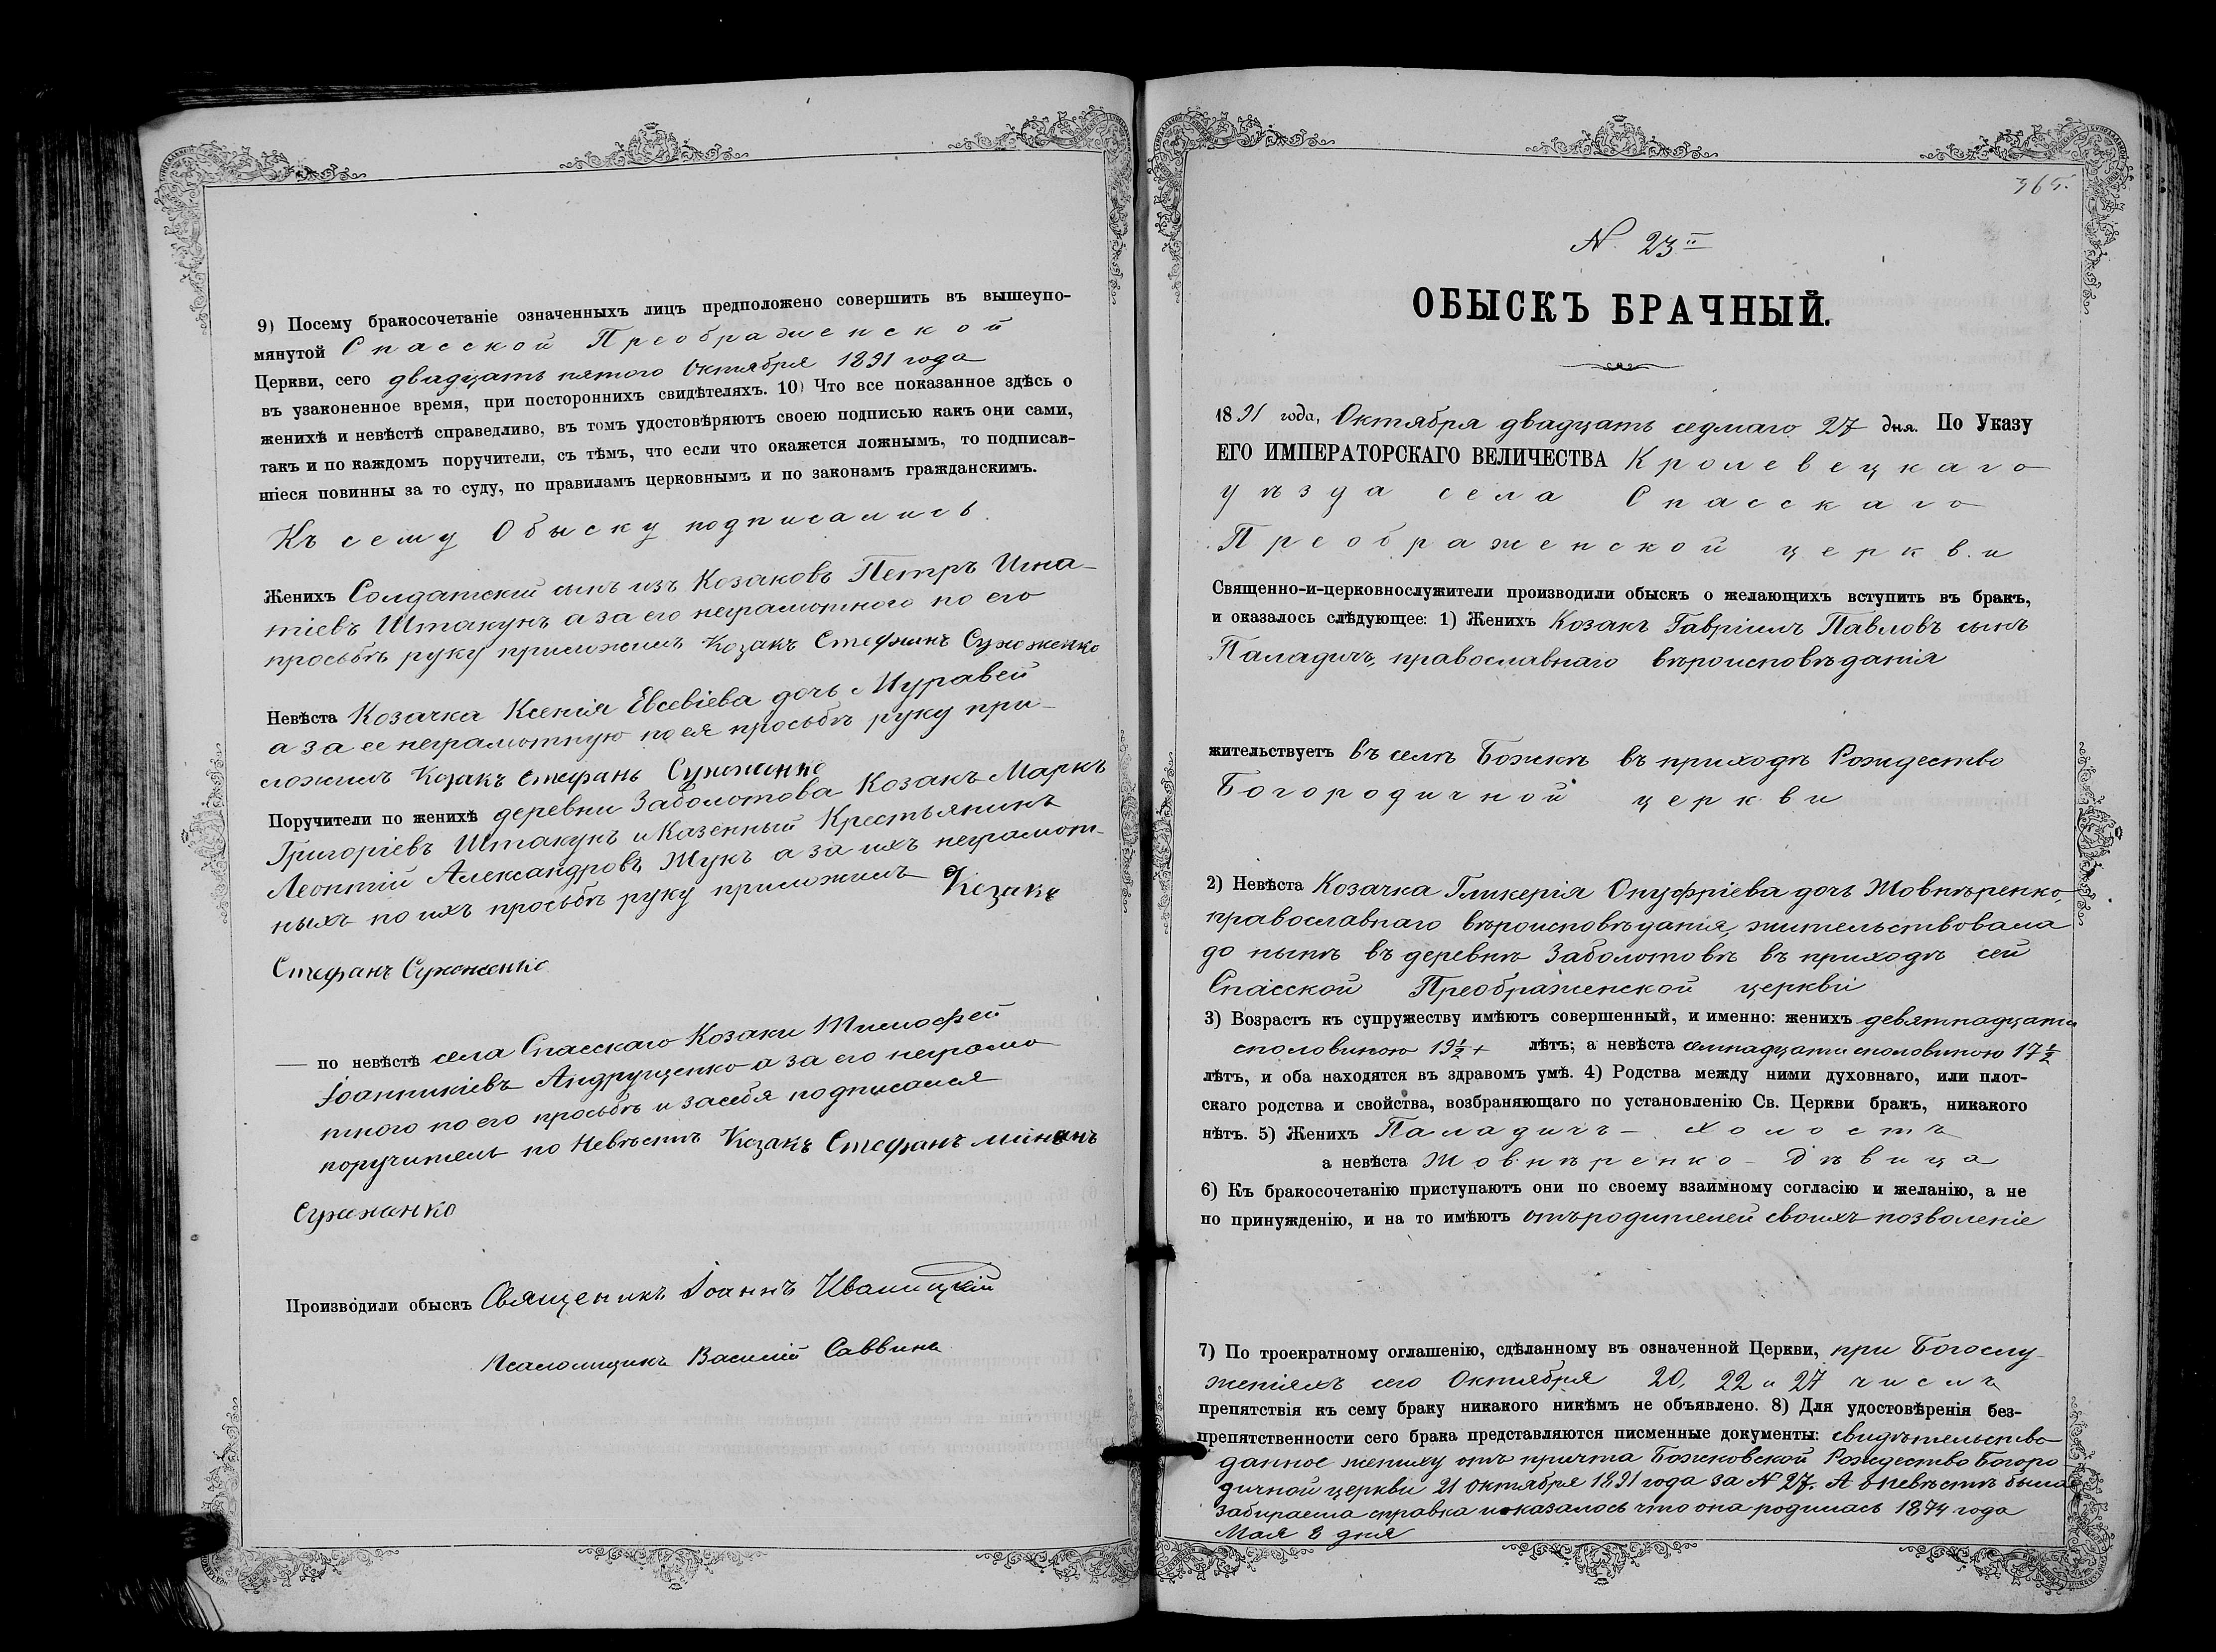 9) Посему бракосочетаніе означенныхъ лицъ предположено совершить въ вышеупо-
мянутой Спасской Преображенской
Церкви, сего двадцать пятого Октября 1891 года
въ узаконенное время, при постороннихъ свидѣтеляхъ. 10) Что все показанное здѣсь о
женихѣ и невѣстѣ справедливо, въ томъ удостовѣряютъ своею подписью какъ они сами,
такъ и по каждомъ поручители, съ тѣмъ, что если что окажется ложнымъ, то подписав-
шіеся повинны за то суду, по правиламъ церковнымъ и по законамъ гражданскимъ.
Къ сему Обыску подписались
Женихъ Солдатскій сынъ изъ Козаковъ Петръ Игна-
тіевъ Штакунъ а за его неграмотного по его
просьбѣ руку приложилъ Козакъ Стефанъ Сужоженко
Невѣста Козачка Ксенія Евсевіева дочь Муравей
а за ее неграмотную по ея просьбѣ руку при-
ложилъ Козакъ Стефанъ
Поручители по женихѣ деревни Заболотова Козакъ Маркъ
Григоріевъ Штакунъ и Казенный Крестьянинъ
Леонтій Александровъ Жукъ а за ихъ неграмот-
ныхъ по ихъ просьбѣ руку приложилъ Козакъ
Стефанъ
— по невѣстѣ села Спасскаго Козаки Тимофей
Іоанникіевъ Андрущенко а за его неграмо
тного по его просьбѣ и за себя подписался
поручитель по Невѣстѣ Козакъ Стефанъ
Производили обыскъ Священикъ Іоаннъ Иваницкій
Псаломщикъ Василій Саввинъ
365.
N. 23
ОБЫСКЪ БРАЧНЫЙ.
1891 года, Октября двадцать седмаго 27 дня. По Указу
ЕГО ИМПЕРАТОРСКАГО ВЕЛИЧЕСТВА Кролевецкаго
уѣзда села Спасскаго
Преображенской церкви
Священно-и-церковнослужители производили обыскъ о желающихъ вступить въ бракъ,
и оказалось слѣдующее: 1) Женихъ Козакъ Гавріилъ Павловъ сынъ
Паладичъ, православнаго вѣроисповѣданія
жительствуетъ въ селѣ Божкѣ въ приходѣ Рождество
Богородичной церкви
2) Невѣста Козачка Гликерія Онуфріева дочь Жовнѣренко,
православнаго вѣроисповѣданія, жительствовала
до нынѣ въ деревнѣ Заболотовѣ въ приходѣ сей
Спасской Преображенской церкви
3) Возрастъ къ супружеству имѣютъ совершенный, и именно: женихъ девятнадцати
споловиною 19½ + лѣтъ; а невѣста семнадцати споловиною 17½
лѣтъ, и оба находятся въ здравомъ умѣ. 4) Родства между ними духовнаго, или плот-
скаго родства и свойства, возбраняющаго по установленію Св. Церкви бракъ, никакого
нѣтъ. 5) Женихъ Паладичъ — холостъ
а невѣста Жовнѣренко — дѣвица
6) Къ бракосочетанію приступаютъ они по своему взаимному согласію и желанію, а не
по принужденію, и на то имѣютъ отъ родителей своихъ позволеніе
7) По троекратному оглашенію, сдѣланному въ означенной Церкви, при Богослу-
женіяхъ сего Октября 20, 22 и 27 числъ
препятствія къ сему браку никакого никѣмъ не объявлено. 8) Для удостовѣренія без-
препятственности сего брака представляются писменные документы: свидѣтельство
данное жениху отъ причта Божковской Рождество Богоро
дичной церкви 21 октября 1891 года за № 27. А о невѣстѣ была
забираема справка и оказалось что она родилась 1874 года
Мая 8 дня